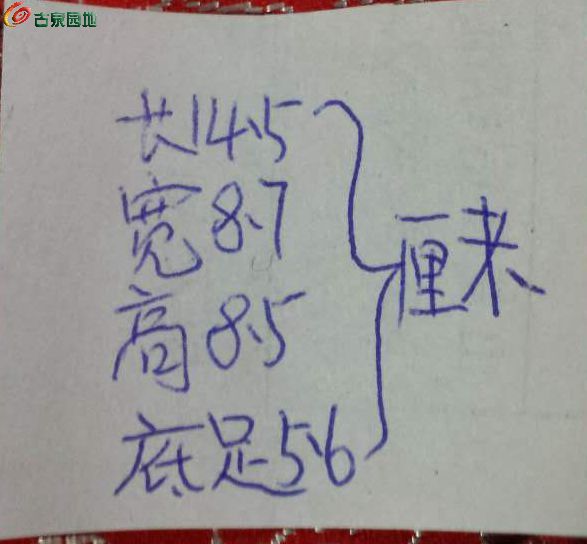 古泉园地
长14.5
宽8.7
高8.5
底足5.6
厘米